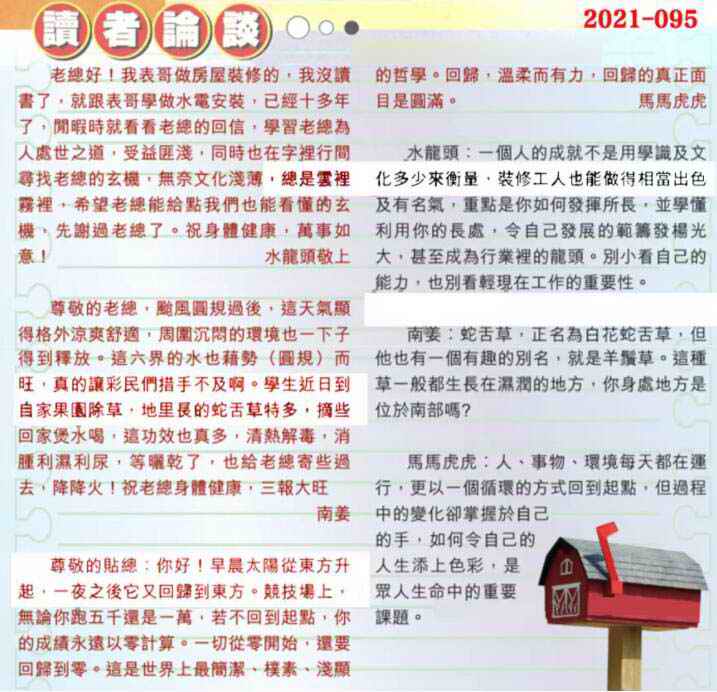 讀者論談
2021-095
老總好！我表哥做房屋裝修的，我沒讀
書了，就跟表哥學做水電安裝，已經十多年
了，閒暇時就看看老總的回信，學習老總為
人處世之道，受益匪淺，同時也在字裡行間
尋找老總的玄機，無奈文化淺薄，總是雲裡
霧裡，希望老總能給點我們也能看懂的玄
機，先謝過老總了。祝身體健康，萬事如
意！ 水龍頭敬上
尊敬的老總，颱風圓規過後，這天氣顯
得格外涼爽舒適，周圍沉悶的環境也一下子
得到釋放。這六界的水也藉勢（圓規）而
旺，真的讓彩民們措手不及啊。學生近日到
自家果園除草，地里長的蛇舌草特多，摘些
回家煲水喝，這功效也真多，清熱解毒，消
腫利濕利尿，等曬乾了，也給老總寄些過
去，降降火！祝老總身體健康，三報大旺
南姜
尊敬的貼總：你好！早晨太陽從東方升
起，一夜之後它又回歸到東方。競技場上，
無論你跑五千還是一萬，若不回到起點，你
的成績永遠以零計算。一切從零開始，還要
回歸到零。這是世界上最簡潔、樸素、淺顯
的哲學。回歸，溫柔而有力，回歸的真正面
目是圓滿。 馬馬虎虎
水龍頭：一個人的成就不是用學識及文
化多少來衡量，裝修工人也能做得相當出色
及有名氣，重點是你如何發揮所長，並學懂
利用你的長處，令自己發展的範籌發楊光
大，甚至成為行業裡的龍頭。別小看自己的
能力，也別看輕現在工作的重要性。
南姜：蛇舌草，正名為白花蛇舌草，但
他也有一個有趣的別名，就是羊鬚草。這種
草一般都生長在濕潤的地方，你身處地方是
位於南部嗎?
馬馬虎虎：人、事物、環境每天都在運
行，更以一個循環的方式回到起點，但過程
中的變化卻掌握於自己
的手，如何令自己的
人生添上色彩，是
眾人生命中的重要
課題。